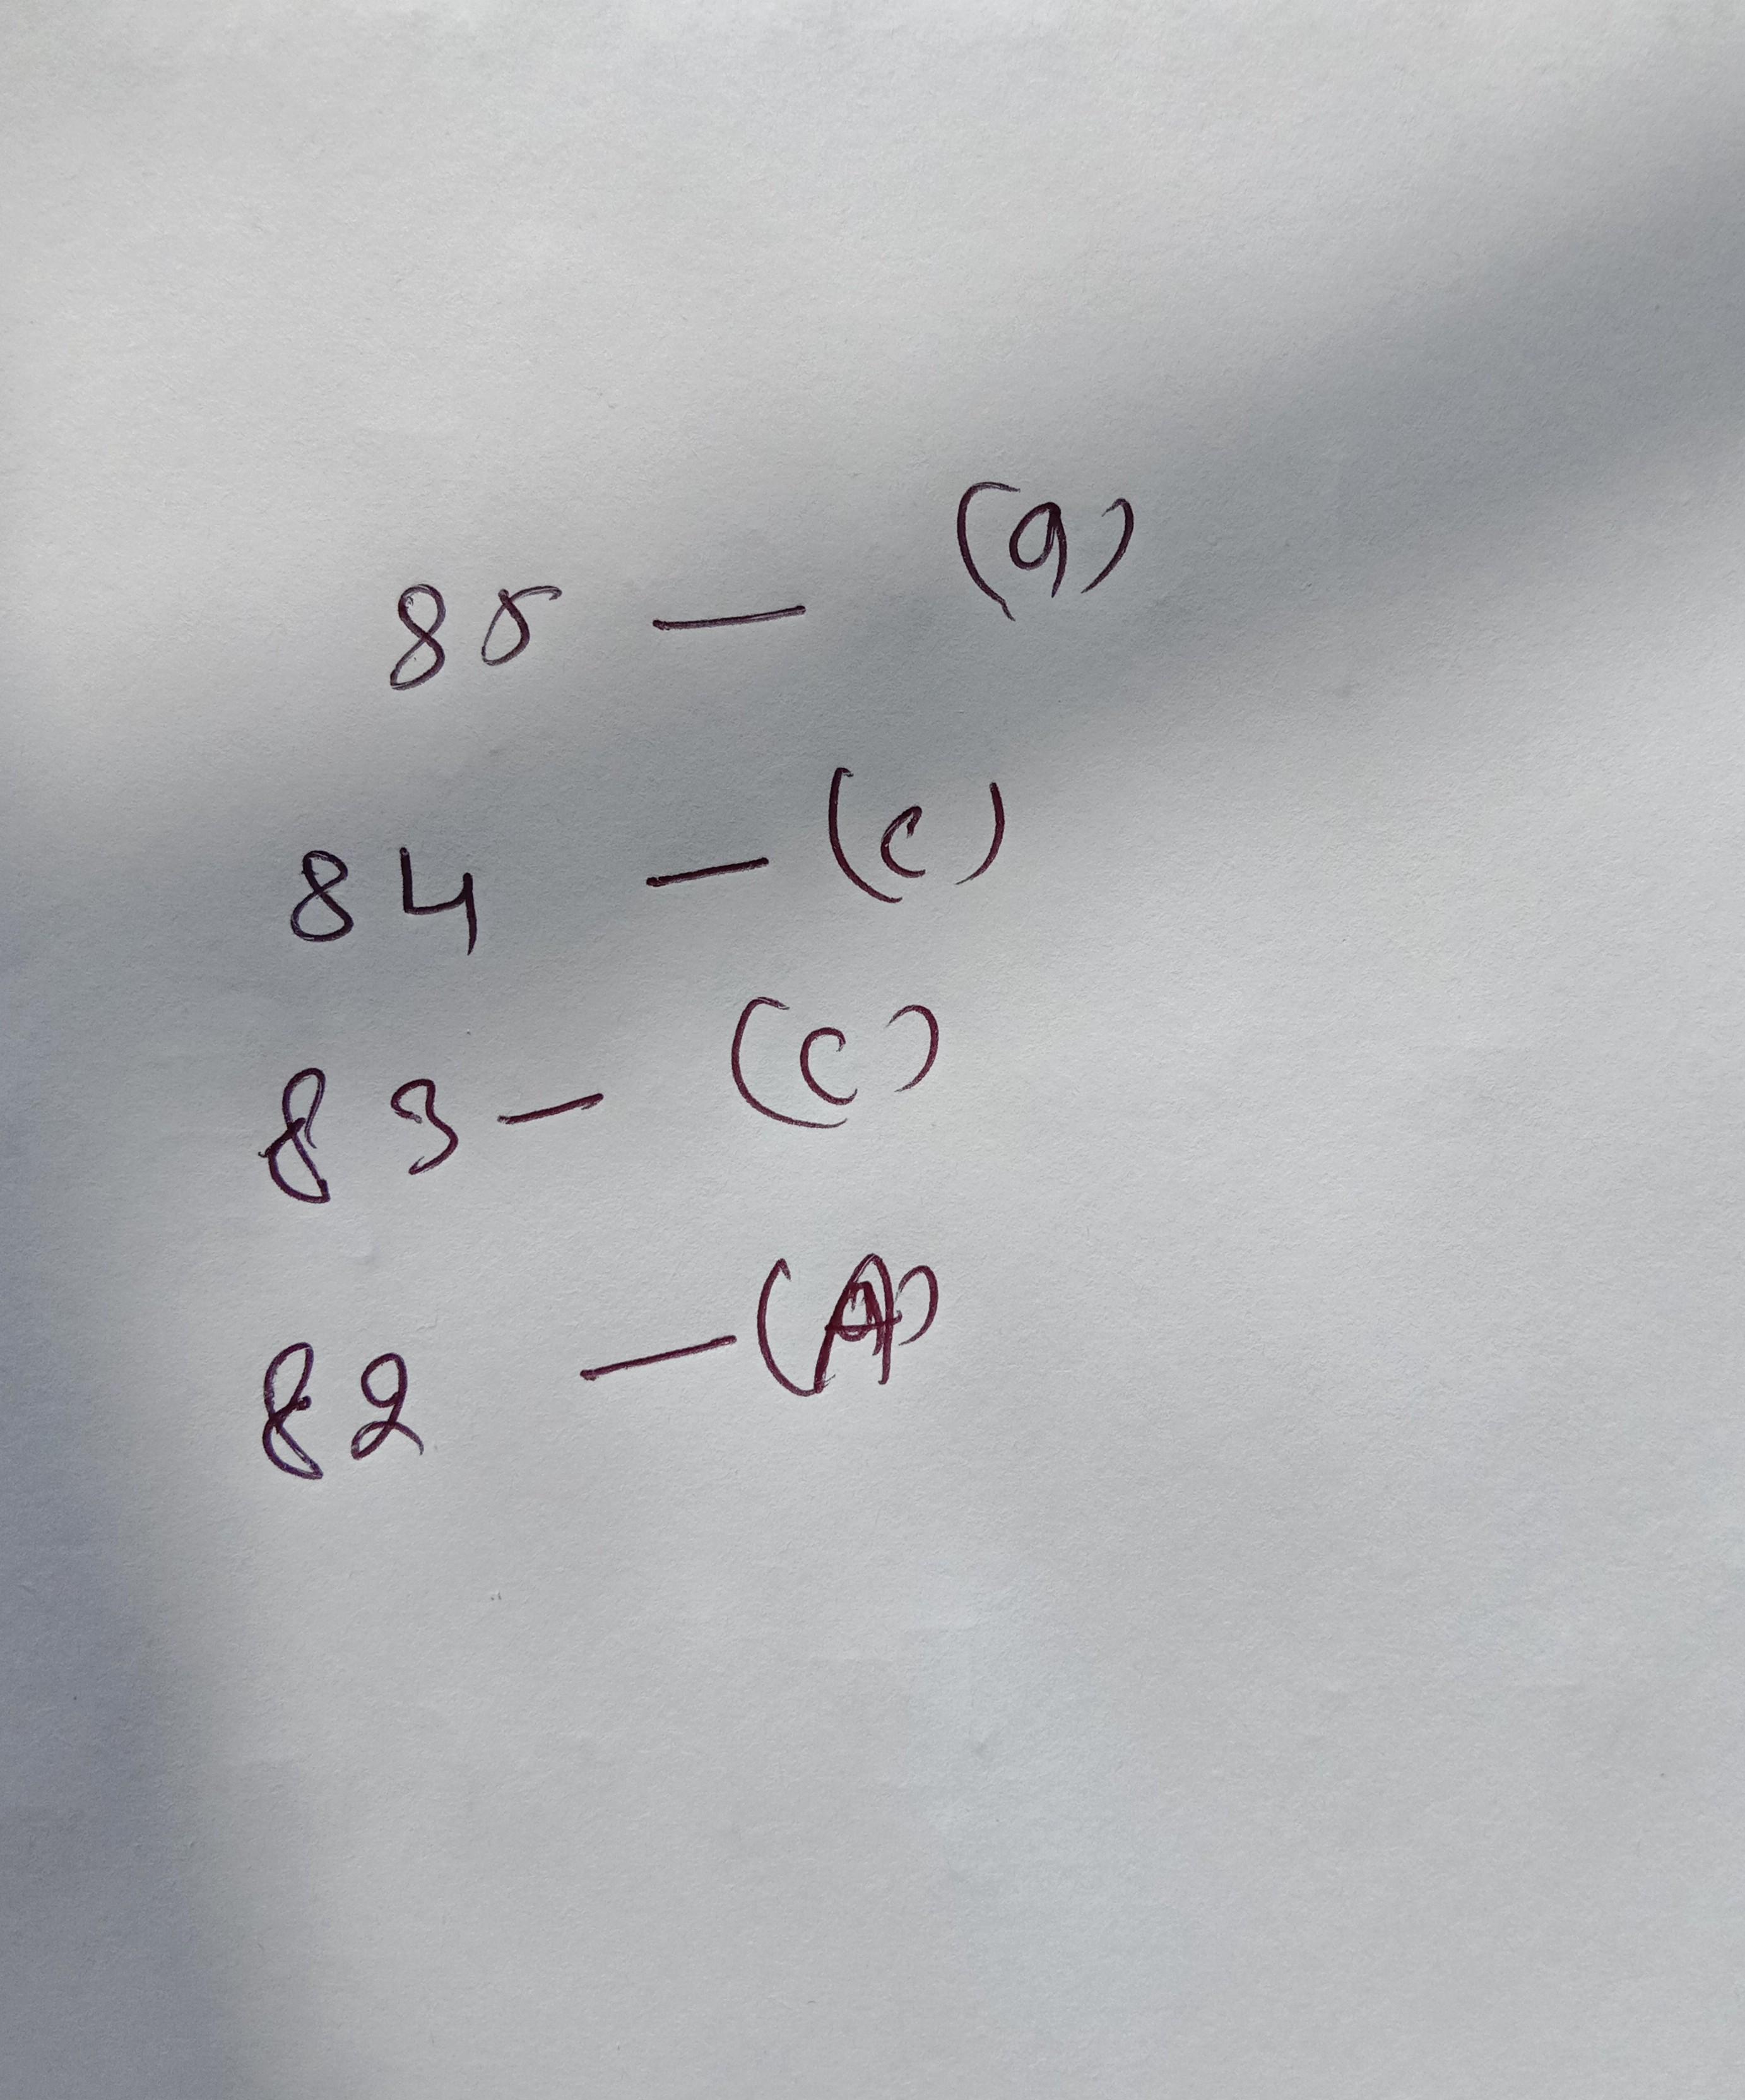 85 — (a)
84 — (c)
83 — (c)
82 — (A)